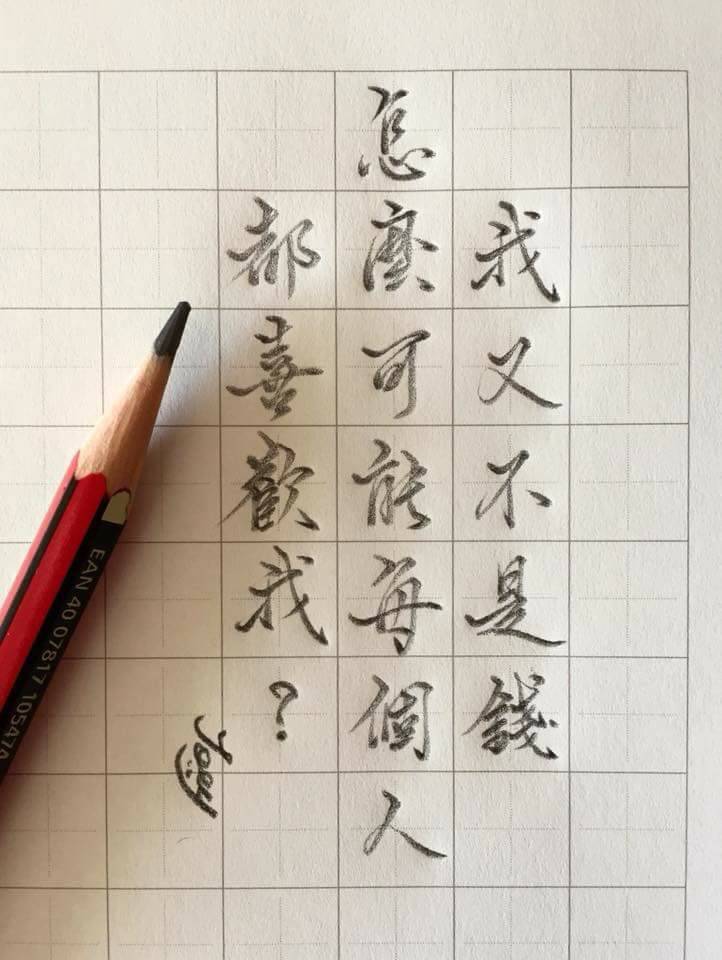 我又不是錢
怎麼可能每個人
都喜歡我？
Joey
EAN 40 07817 10547